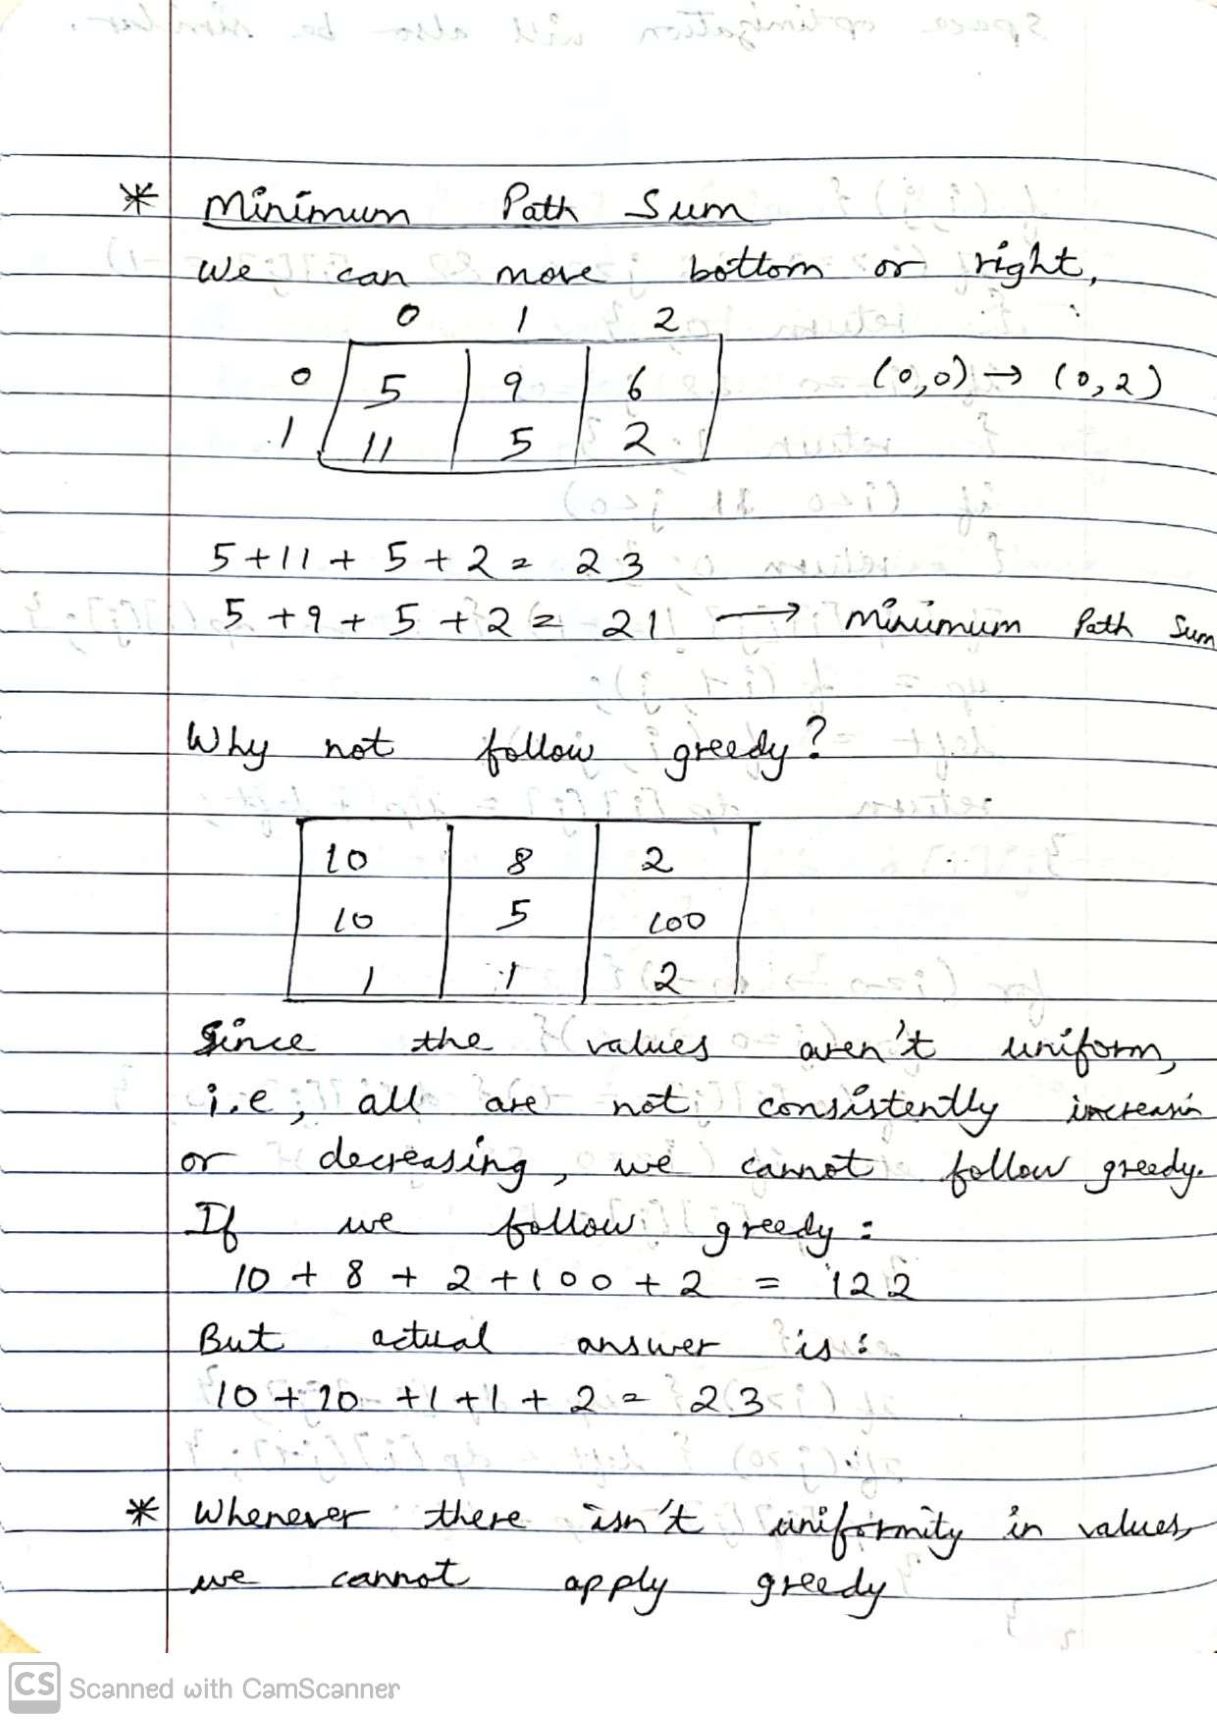 * Minimum Path Sum
We can move bottom or right,
0 1 2
0 5 9 6 (0,0) → (0,2)
1 11 5 2
5 + 11 + 5 + 2 = 23
5 + 9 + 5 + 2 = 21 → Minimum Path Sum
Why not follow greedy?
10 8 2
10 5 100
1 1 2
Since the values aren't uniform,
i.e, all are not consistently increasin
or decreasing, we cannot follow greedy.
If we follow greedy :
10 + 8 + 2 + 100 + 2 = 122
But actual answer is :
10 + 10 + 1 + 1 + 2 = 23
* Whenever there isn't uniformity in values,
we cannot apply greedy
CS Scanned with CamScanner